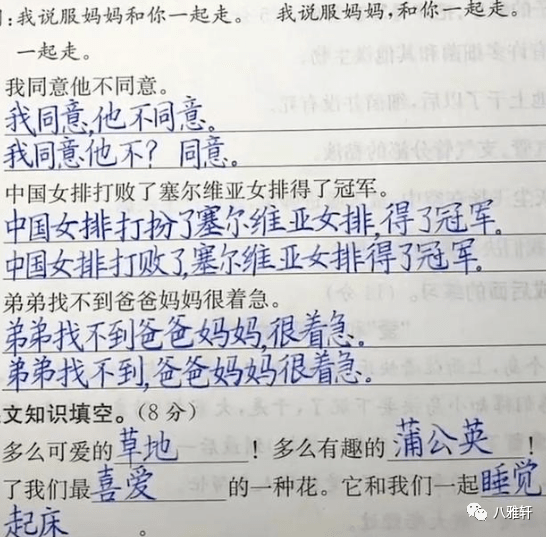 :我说服妈妈和你一起走。 我说服妈妈,和你一起走。
一起走。
我同意他不同意。
我同意,他不同意。
我同意他不? 同意。
中国女排打败了塞尔维亚女排得了冠军。
中国女排打扮了塞尔维亚女排,得了冠军。
中国女排打败了,塞尔维亚女排得了冠军。
弟弟找不到爸爸妈妈很着急。
弟弟找不到爸爸妈妈,很着急。
弟弟找不到,爸爸妈妈很着急。
文知识填空。(8 分)
多么可爱的 草地 ! 多么有趣的 蒲公英
了我们最 喜爱 的一种花。它和我们一起 睡觉
起床 。
八雅轩